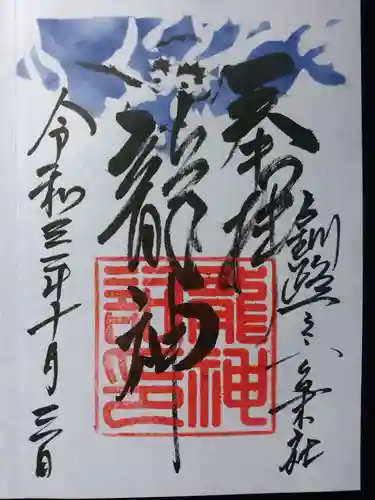 奉拝
釧路之六集社
龍神
龍神
令和三年十月三日